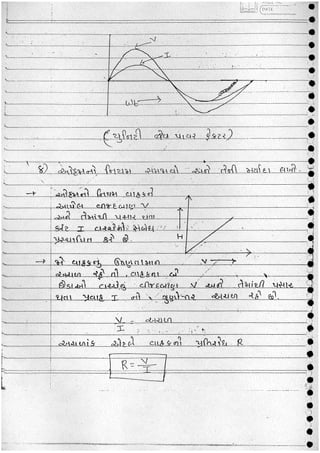 DATE
V
I
ωt →
( યુનિટી ઓફ પાવર ફેક્ટર )
૪) ઓહમનો નિયમ સમજાવો અને તેની મર્યાદા લખો.
→ ઓહમનો નિયમ વાહકને
આપેલ વીજદબાણ V
અને તેમાંથી પસાર થતા
કરંટ I વચ્ચેનો સંબંધ
પ્રસ્થાપિત કરે છે.
I
V →
→ જો વાહકનું ઉષ્ણતામાન
અચળ રહે તો વાહકના બે
છેડાઓ વચ્ચેનું વીજદબાણ V અને તેમાંથી પસાર
થતા પ્રવાહ I નો ગુણોત્તર અચળ રહે છે.
V/I = અચળ
અચળાંક એટલે વાહકનો પ્રતિરોધ R
R = V/I